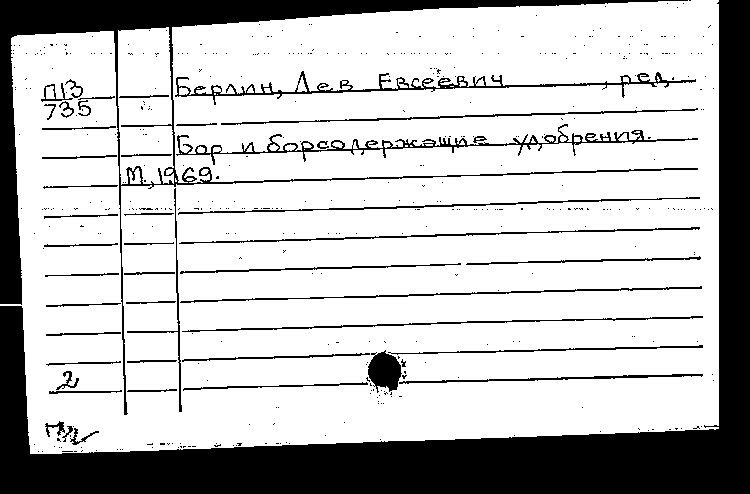 П13
735
Берлин, Лев Евсеевич , ред.
Бор и борсодержащие удобрения.
М, 1969.
2